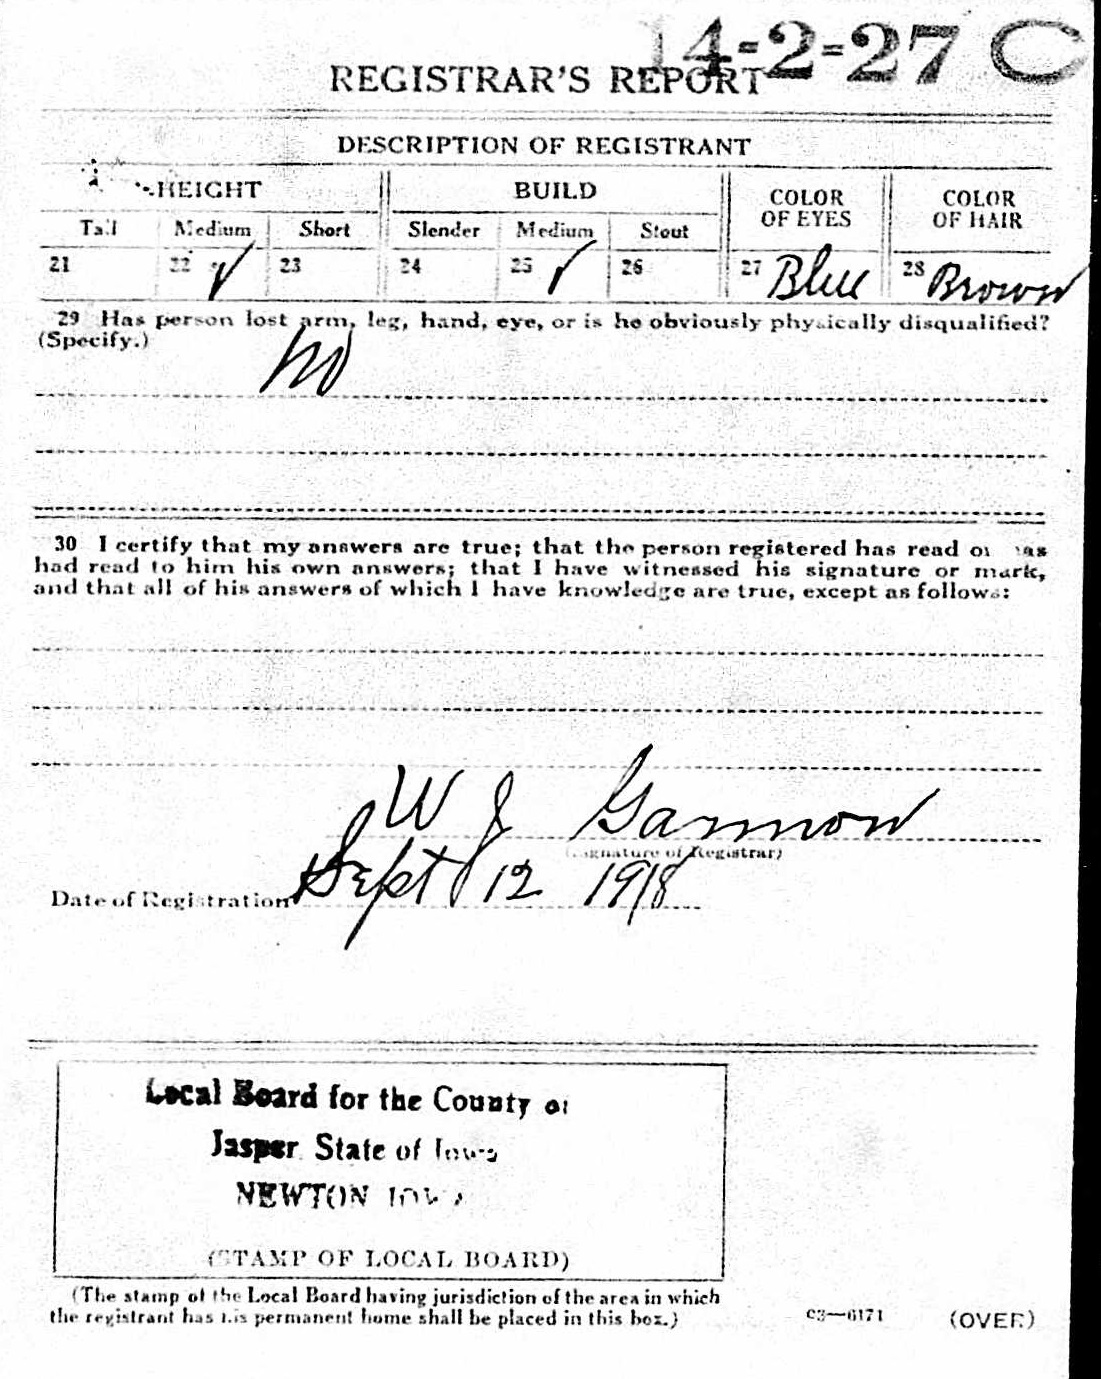 14-2-27 C
REGISTRAR'S REPORT
DESCRIPTION OF REGISTRANT
HEIGHT BUILD COLOR OF EYES COLOR OF HAIR
Tall Medium Short Slender Medium Stout
21 22 ✓ 23 24 25 ✓ 26 27 Blue 28 Brown
29 Has person lost arm, leg, hand, eye, or is he obviously physically disqualified?
(Specify.)
No
30 I certify that my answers are true; that the person registered has read or has
had read to him his own answers; that I have witnessed his signature or mark,
and that all of his answers of which I have knowledge are true, except as follows:
W J Gannon
(Signature of Registrar)
Date of Registration Sept 12 1918
Local Board for the County of
Jasper State of Iowa
NEWTON IOWA
(STAMP OF LOCAL BOARD)
(The stamp of the Local Board having jurisdiction of the area in which
the registrant has his permanent home shall be placed in this box.)
03—6171 (OVER)